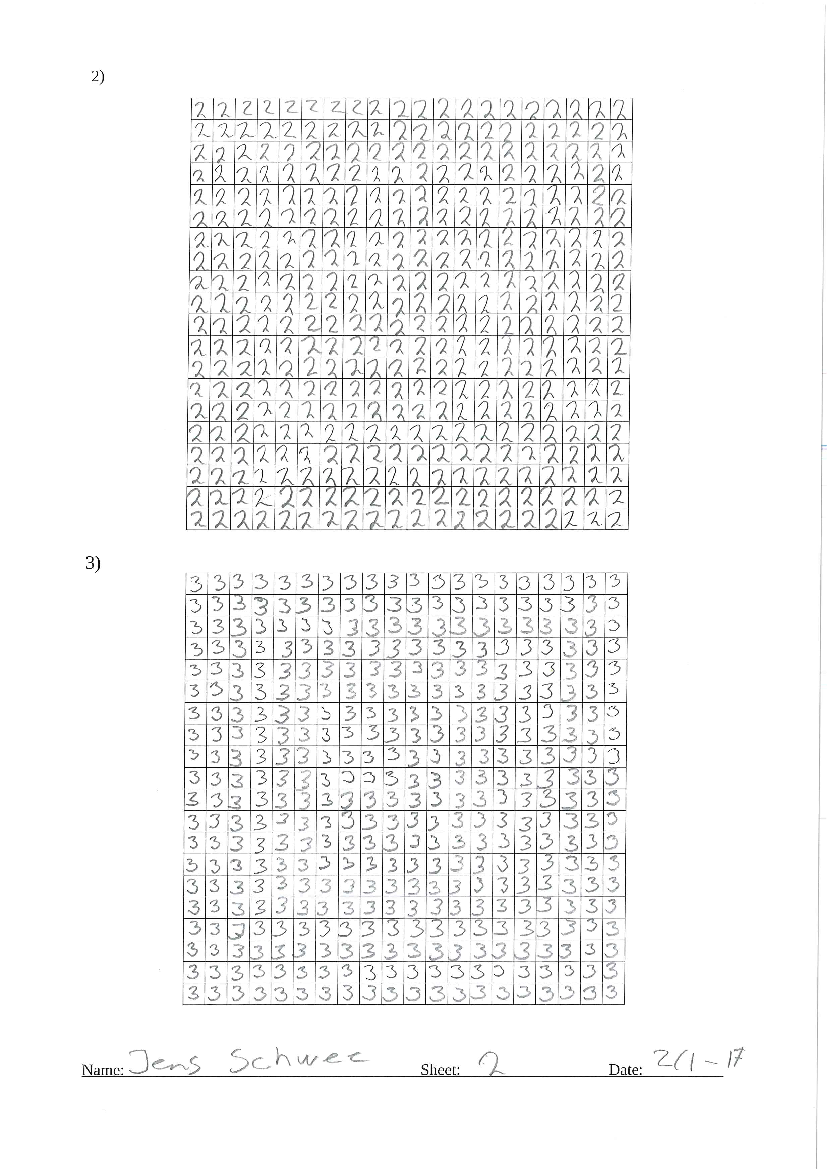 2)
2 2 2 2 2 2 2 2 2 2 2 2 2 2 2 2 2 2 2 2
2 2 2 2 2 2 2 2 2 2 2 2 2 2 2 2 2 2 2 2
2 2 2 2 2 2 2 2 2 2 2 2 2 2 2 2 2 2 2 2
2 2 2 2 2 2 2 2 2 2 2 2 2 2 2 2 2 2 2 2
2 2 2 2 2 2 2 2 2 2 2 2 2 2 2 2 2 2 2 2
2 2 2 2 2 2 2 2 2 2 2 2 2 2 2 2 2 2 2 2
2 2 2 2 2 2 2 2 2 2 2 2 2 2 2 2 2 2 2 2
2 2 2 2 2 2 2 2 2 2 2 2 2 2 2 2 2 2 2 2
2 2 2 2 2 2 2 2 2 2 2 2 2 2 2 2 2 2 2 2
2 2 2 2 2 2 2 2 2 2 2 2 2 2 2 2 2 2 2 2
2 2 2 2 2 2 2 2 2 2 2 2 2 2 2 2 2 2 2 2
2 2 2 2 2 2 2 2 2 2 2 2 2 2 2 2 2 2 2 2
2 2 2 2 2 2 2 2 2 2 2 2 2 2 2 2 2 2 2 2
2 2 2 2 2 2 2 2 2 2 2 2 2 2 2 2 2 2 2 2
2 2 2 2 2 2 2 2 2 2 2 2 2 2 2 2 2 2 2 2
2 2 2 2 2 2 2 2 2 2 2 2 2 2 2 2 2 2 2 2
2 2 2 2 2 2 2 2 2 2 2 2 2 2 2 2 2 2 2 2
2 2 2 2 2 2 2 2 2 2 2 2 2 2 2 2 2 2 2 2
2 2 2 2 2 2 2 2 2 2 2 2 2 2 2 2 2 2 2 2
2 2 2 2 2 2 2 2 2 2 2 2 2 2 2 2 2 2 2 2
3)
3 3 3 3 3 3 3 3 3 3 3 3 3 3 3 3 3 3 3 3
3 3 3 3 3 3 3 3 3 3 3 3 3 3 3 3 3 3 3 3
3 3 3 3 3 3 3 3 3 3 3 3 3 3 3 3 3 3 3 3
3 3 3 3 3 3 3 3 3 3 3 3 3 3 3 3 3 3 3 3
3 3 3 3 3 3 3 3 3 3 3 3 3 3 3 3 3 3 3 3
3 3 3 3 3 3 3 3 3 3 3 3 3 3 3 3 3 3 3 3
3 3 3 3 3 3 3 3 3 3 3 3 3 3 3 3 3 3 3 3
3 3 3 3 3 3 3 3 3 3 3 3 3 3 3 3 3 3 3 3
3 3 3 3 3 3 3 3 3 3 3 3 3 3 3 3 3 3 3 3
3 3 3 3 3 3 3 3 3 3 3 3 3 3 3 3 3 3 3 3
3 3 3 3 3 3 3 3 3 3 3 3 3 3 3 3 3 3 3 3
3 3 3 3 3 3 3 3 3 3 3 3 3 3 3 3 3 3 3 3
3 3 3 3 3 3 3 3 3 3 3 3 3 3 3 3 3 3 3 3
3 3 3 3 3 3 3 3 3 3 3 3 3 3 3 3 3 3 3 3
3 3 3 3 3 3 3 3 3 3 3 3 3 3 3 3 3 3 3 3
3 3 3 3 3 3 3 3 3 3 3 3 3 3 3 3 3 3 3 3
3 3 3 3 3 3 3 3 3 3 3 3 3 3 3 3 3 3 3 3
3 3 3 3 3 3 3 3 3 3 3 3 3 3 3 3 3 3 3 3
3 3 3 3 3 3 3 3 3 3 3 3 3 3 3 3 3 3 3 3
3 3 3 3 3 3 3 3 3 3 3 3 3 3 3 3 3 3 3 3
Name: Jens Schwee Sheet: 2 Date: 2/1-17